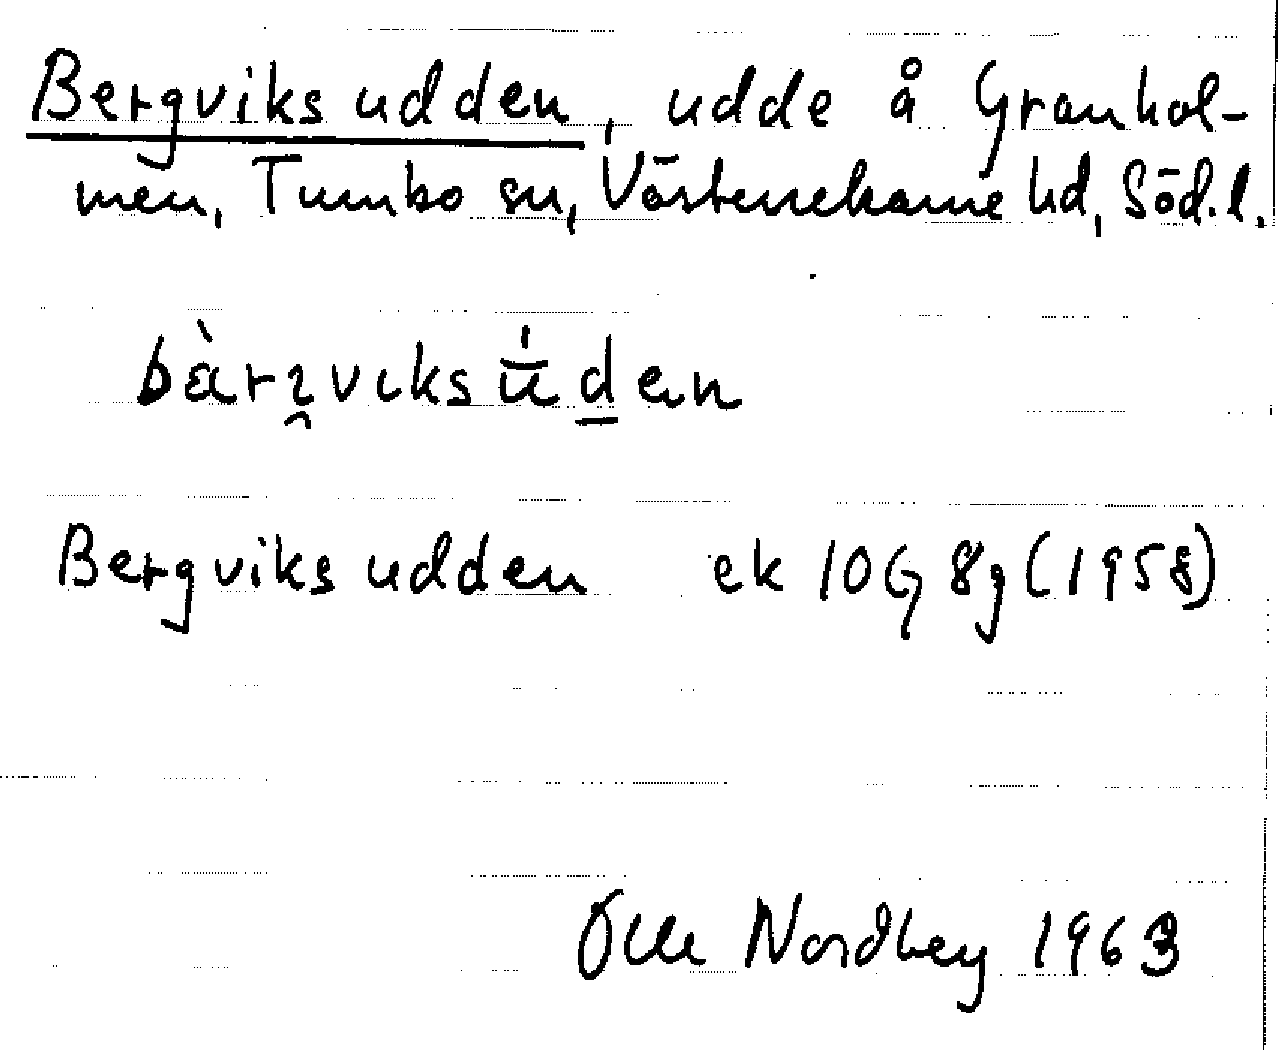 Bergviks udden, udde å Granhol-
men, Tumbo sn, Västerrekarne hd, Söd. l.
bàrʒviks ú̄den
Bergviks udden ek 10G 8g (1958)
Olle Nordbey 1963